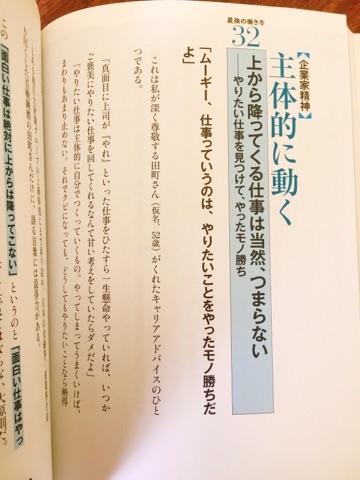 最強の働き方
32
【企業家精神】
主体的に動く
上から降ってくる仕事は当然、つまらない
――やりたい仕事を見つけて、やったモノ勝ち
「ムーギー、仕事っていうのは、やりたいことをやったモノ勝ちだ
よ」
これは私が深く尊敬する田町さん(仮名、52歳)がくれたキャリアアドバイスのひと
つである。
「真面目に上司が『やれ』といった仕事をひたすら一生懸命やっていれば、いつか
ご褒美にやりたい仕事を回してくれるなんて甘い考えをしていたらダメだよ」
「やりたい仕事は主体的に自分でつくっていくもの。やってしまってうまくいけば、
まわりもあまり止めない。それでクビになっても、どうしてもやりたいことなら納得
田町さんだけに、語る言葉には説得力がある。
この「面白い仕事は絶対に上からは降ってこない」というのと「面白い仕事はやっ